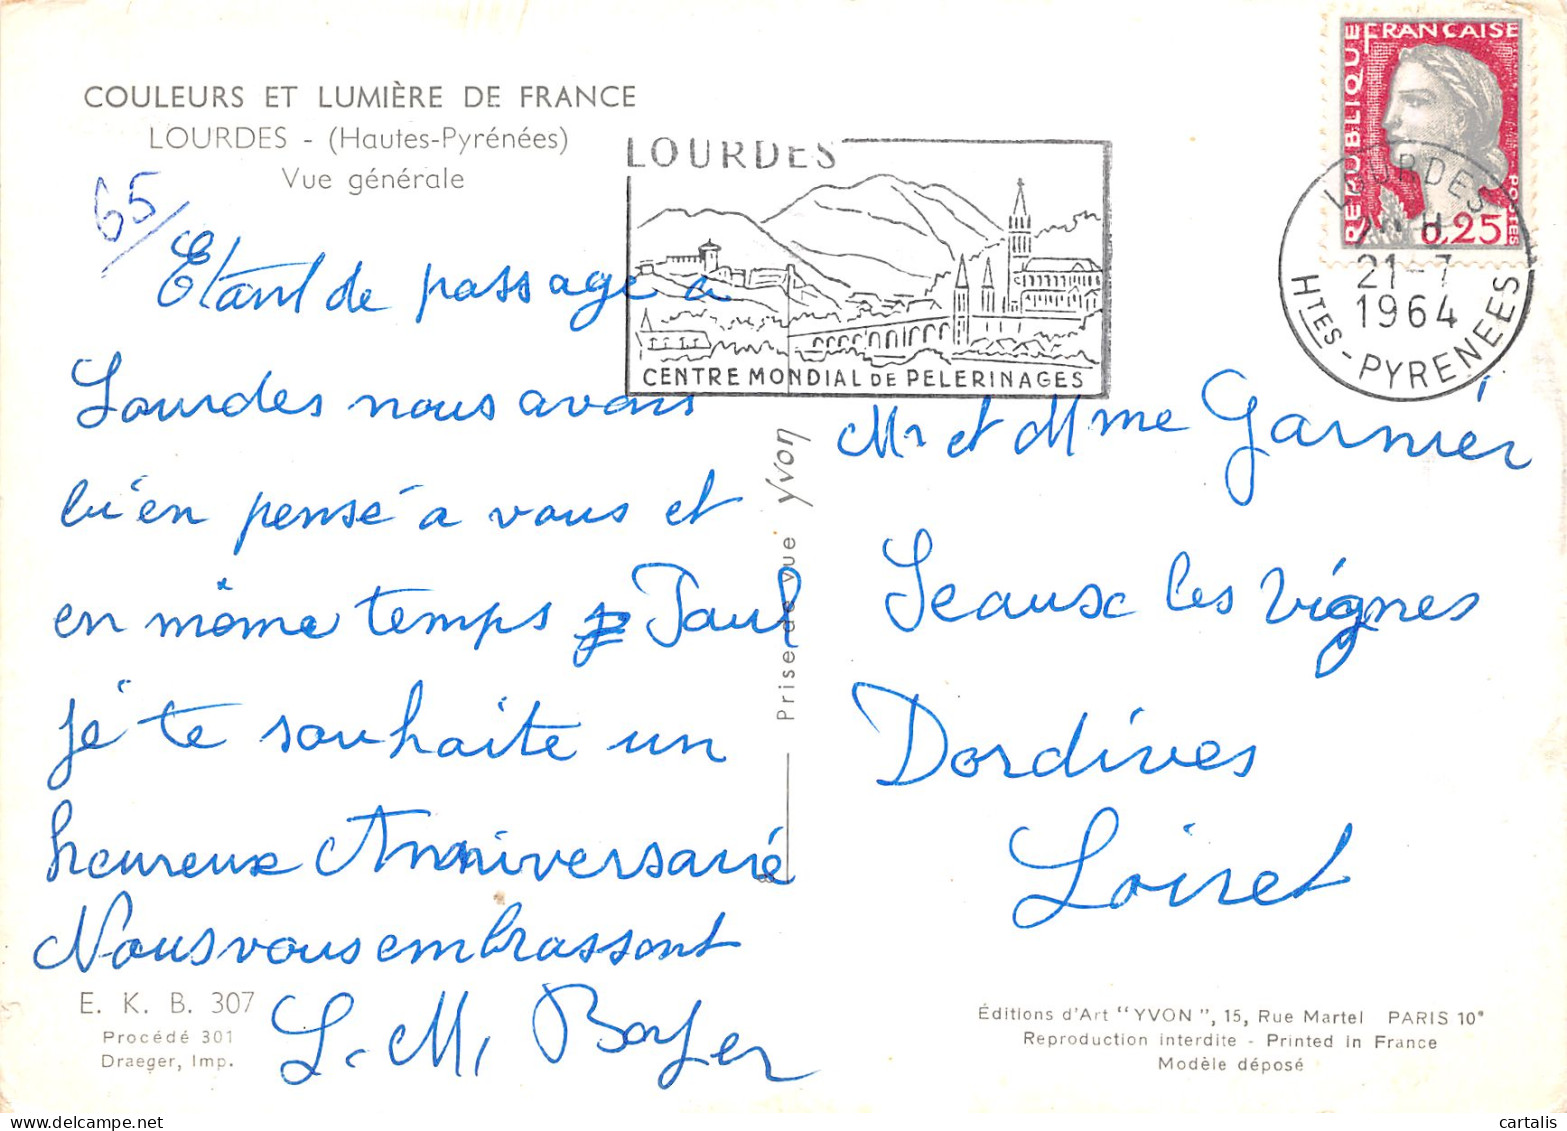 COULEURS ET LUMIÈRE DE FRANCE
LOURDES - (Hautes-Pyrénées)
Vue générale
65/
Etant de passage a
Lourdes nous avons
bien pensé a vous et
en même temps Paul
je te souhaite un
heureux Anniversaire
Nous vous embrassont
L. M. Boyer
E. K. B. 307
Procédé 301
Draeger, Imp.
LOURDES
CENTRE MONDIAL DE PELERINAGES
Prise de vue Yvon
REPUBLIQUE FRANÇAISE
POSTES
0,25
LOURDES
21-7
1964
HTES-PYRENEES
Mr et Mme Garnier
Seaux les Vignes
Dordives
Loiret
Éditions d'Art "YVON", 15, Rue Martel PARIS 10e
Reproduction interdite - Printed in France
Modèle déposé
cartalis